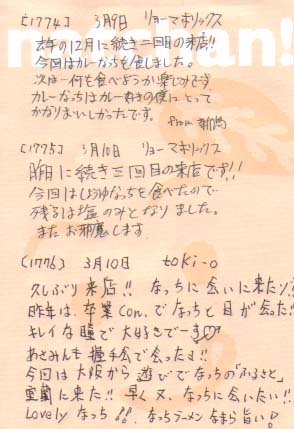 [1774] 3月9日 リョーマホリックス
去年の12月に続き二回目の来店!!
今回はカレーなっちを食しました。
次は何を食べようか楽しみです
カレーなっちはカレー好きの僕にとって
かなりまいしかったです。 from 新潟
[1775] 3月10日 リョーマホリックス
昨日に続き三回目の来店です!!
今回はしょうゆなっちを食べたので
残るは塩のみとなりました。
またお邪魔します
[1776] 3月10日 toki-o
久しぶり来店!! なっちに会いに来たゾ!!
昨年は、卒業con.でなっちと目が会った!!
キレイな瞳で大好きでーす♡
あさみんも握手会で会ったョ!!
今回は大阪から遊びでなっちの「ふるさと」
室蘭に来た!! 早く又、なっちに会いたい!!
Lovelyなっち!! なっちラーメンなまら旨い!